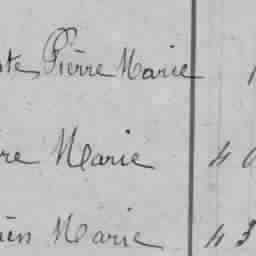 te, Pierre Marie 1
re Marie 40
ien Marie 43